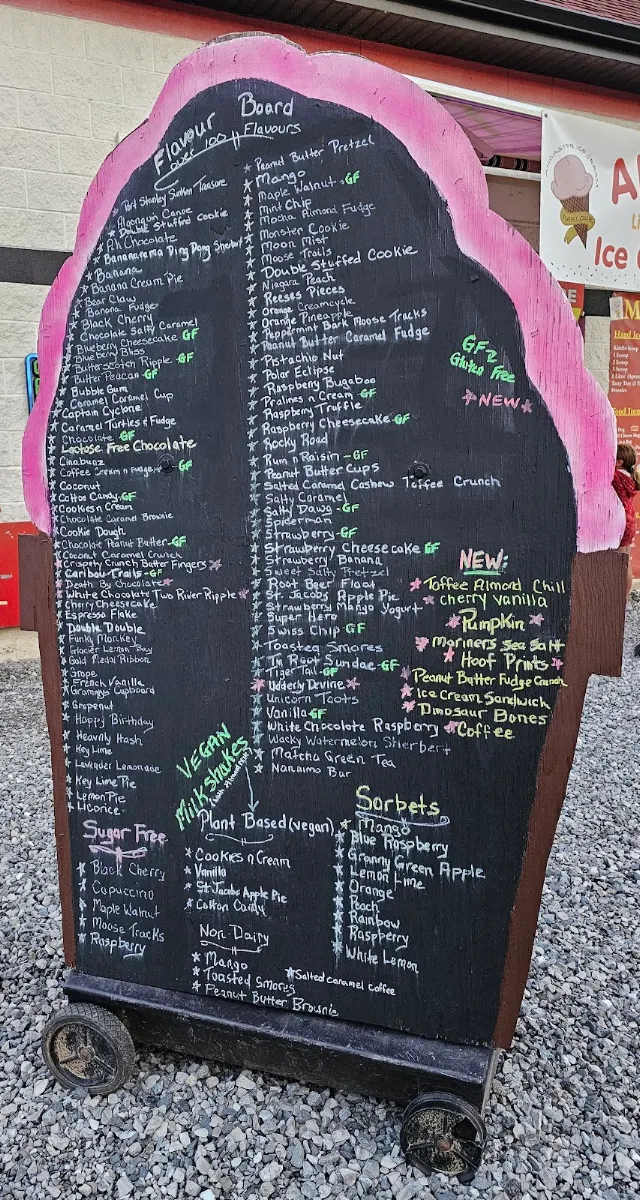 Flavour Board
over 100 Flavours
Port Stanley Sunken Treasure
Algonquin Canoe
Double Stuffed Cookie
Ah Chocolate
Bananarama Ding Dong Sherbet
Banana
Banana Cream Pie
Bear Claw
Banana Fudge
Black Cherry
Chocolate Salty Caramel
Blueberry Cheesecake GF
Blueberry Bliss
Butterscotch Ripple - GF
Butter Peacan - GF
Bubble Gum
Caramel Caramel Cup
Captain Cyclone
Caramel Turtles n Fudge
Chocolate GF
Lactose Free Chocolate
Cinabunz
Coffee Cream n Fudge GF
Coconut
Cotton Candy GF
Cookies n Cream
Chocolate Caramel Brownie
Cookie Dough
Chocolate Peanut Butter - GF
Coconut Caramel Crunch
Crispety Crunch Butter Fingers
Caribou Trails - GF
Death By Chocolate
White Chocolate Two River Ripple
Cherry Cheesecake
Espresso Flake
Double Double
Funky Monkey
Glacier Lemon Bay
Gold Medal Ribbon
Grape
French Vanilla
Grammys Cupboard
Grapenut
Happy Birthday
Heavenly Hash
Key Lime
Lavender Lemonade
Key Lime Pie
Lemon Pie
Licorice
Peanut Butter Pretzel
Mango
Maple Walnut - GF
Mint Chip
Mocha Almond Fudge
Monster Cookie
Moon Mist
Moose Trails
Double Stuffed Cookie
Niagara Peach
Reeses Pieces
Orange Creamcycle
Orange Pineapple
Peppermint Bark Moose Tracks
Peanut Butter Caramel Fudge
Pistachio Nut
Polar Eclipse
Raspberry Bugaboo
Pralines n Cream - GF
Raspberry Truffle
Raspberry Cheesecake - GF
Rocky Road
Rum n Raisin - GF
Peanut Butter Cups
Salted Caramel Cashew Toffee Crunch
Salty Caramel
Salty Dawg - GF
Spiderman
Strawberry - GF
Strawberry Cheesecake GF
Strawberry Banana
Sweet Salty Pretzel
Root Beer Float
St. Jacobs Apple Pie
Strawberry Mango Yogurt
Super Hero
Swiss Chip GF
Toasted Smores
Tin Roof Sundae - GF
Tiger Tail - GF
Udderly Devine
Unicorn Toots
Vanilla GF
White Chocolate Raspberry
Wacky Watermelon Sherbert
Matcha Green Tea
Nanaimo Bar
GF=
Gluten Free
NEW
NEW:
Toffee Almond Chill
cherry vanilla
Pumpkin
Mariners Sea Salt
Hoof Prints
Peanut Butter Fudge Crunch
Ice Cream Sandwich
Dinosaur Bones
Coffee
Sugar Free
Black Cherry
Capuccino
Maple Walnut
Moose Tracks
Raspberry
VEGAN
Milkshakes
Plant Based (vegan)
Cookies n Cream
Vanilla
St Jacobs Apple Pie
Cotton Candy
Non Dairy
Mango
Toasted Smores
Salted caramel coffee
Peanut Butter Brownie
Sorbets
Mango
Blue Raspberry
Granny Green Apple
Lemon Lime
Orange
Peach
Rainbow
Raspberry
White Lemon
Ice
Hard Ice